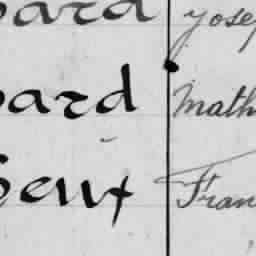 ard Josep
ard Math
Seux Fran